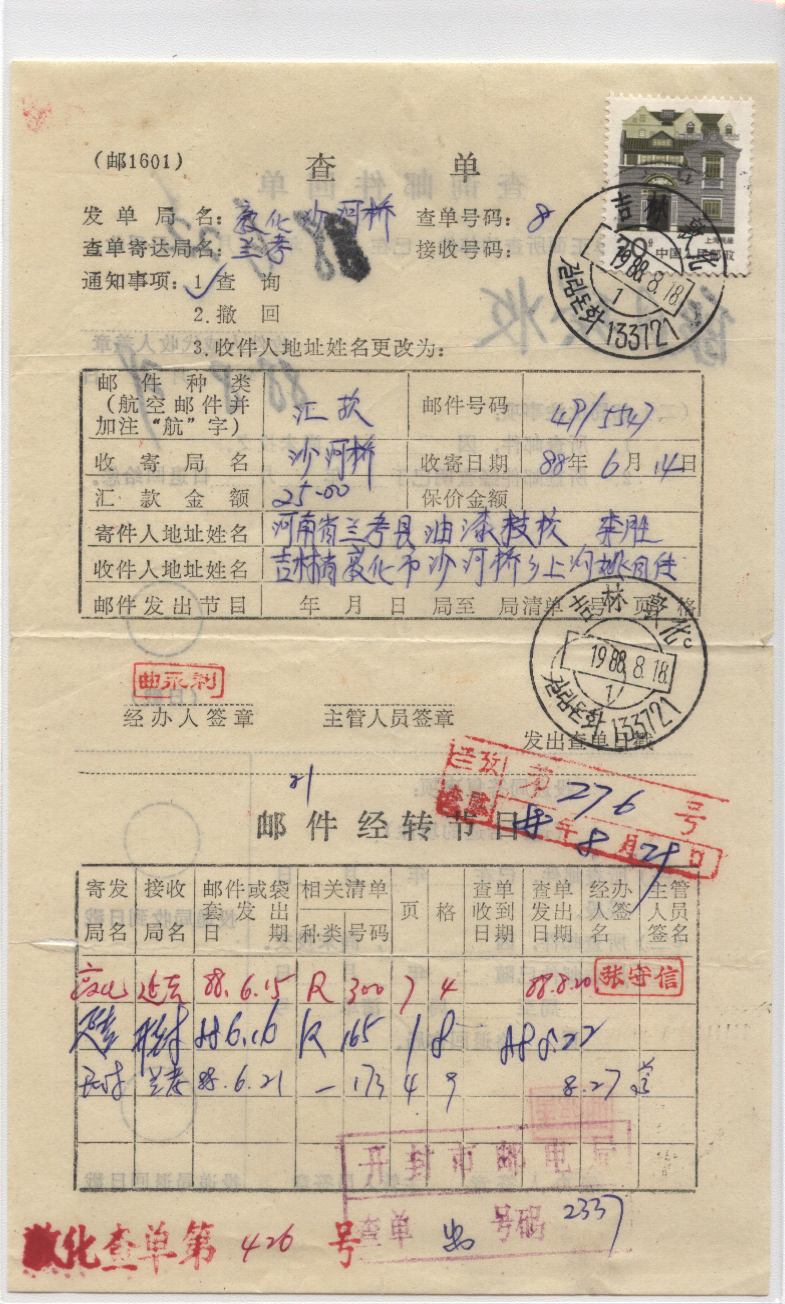 (邮1601)
查 单
发单局名：敦化沙河桥 查单号码：8
查单寄达局名：兰考 接收号码：
通知事项：1. 查 询
2. 撤 回
3. 收件人地址姓名更改为：
20分 中国人民邮政
吉林 敦化
1988.8.18.
길림돈화 133721
邮件种类（航空邮件并加注“航”字） 汇款 邮件号码
收寄局名 沙河桥 收寄日期 88年6月14日
汇款金额 25.00 保价金额
寄件人地址姓名 河南省兰考县油漆技校 李胜
收件人地址姓名 吉林省敦化市沙河桥乡上沟
邮件发出节目 年 月 日 局至 局清单 号 页 格
吉林 敦化
1988.8.18.
17
길림돈화 133721
曲永利
经办人签章 主管人员签章 发出查单日戳
第276号
年8月29日
21
邮件经转节目
寄发局名 接收局名 邮件或袋套发出日期 相关清单 种类 号码 页 格 查单收到日期 查单发出日期 经办人签名 主管人员签名
敦化 88.6.15 R 300 7 4 88.8.20 张守信
88 6.16 R 165 1 8 88 8.22
兰考 88.6.21 一 173 4 9 8.27
开封市邮电局
查单 出 号码 2337
敦化查单第 426 号